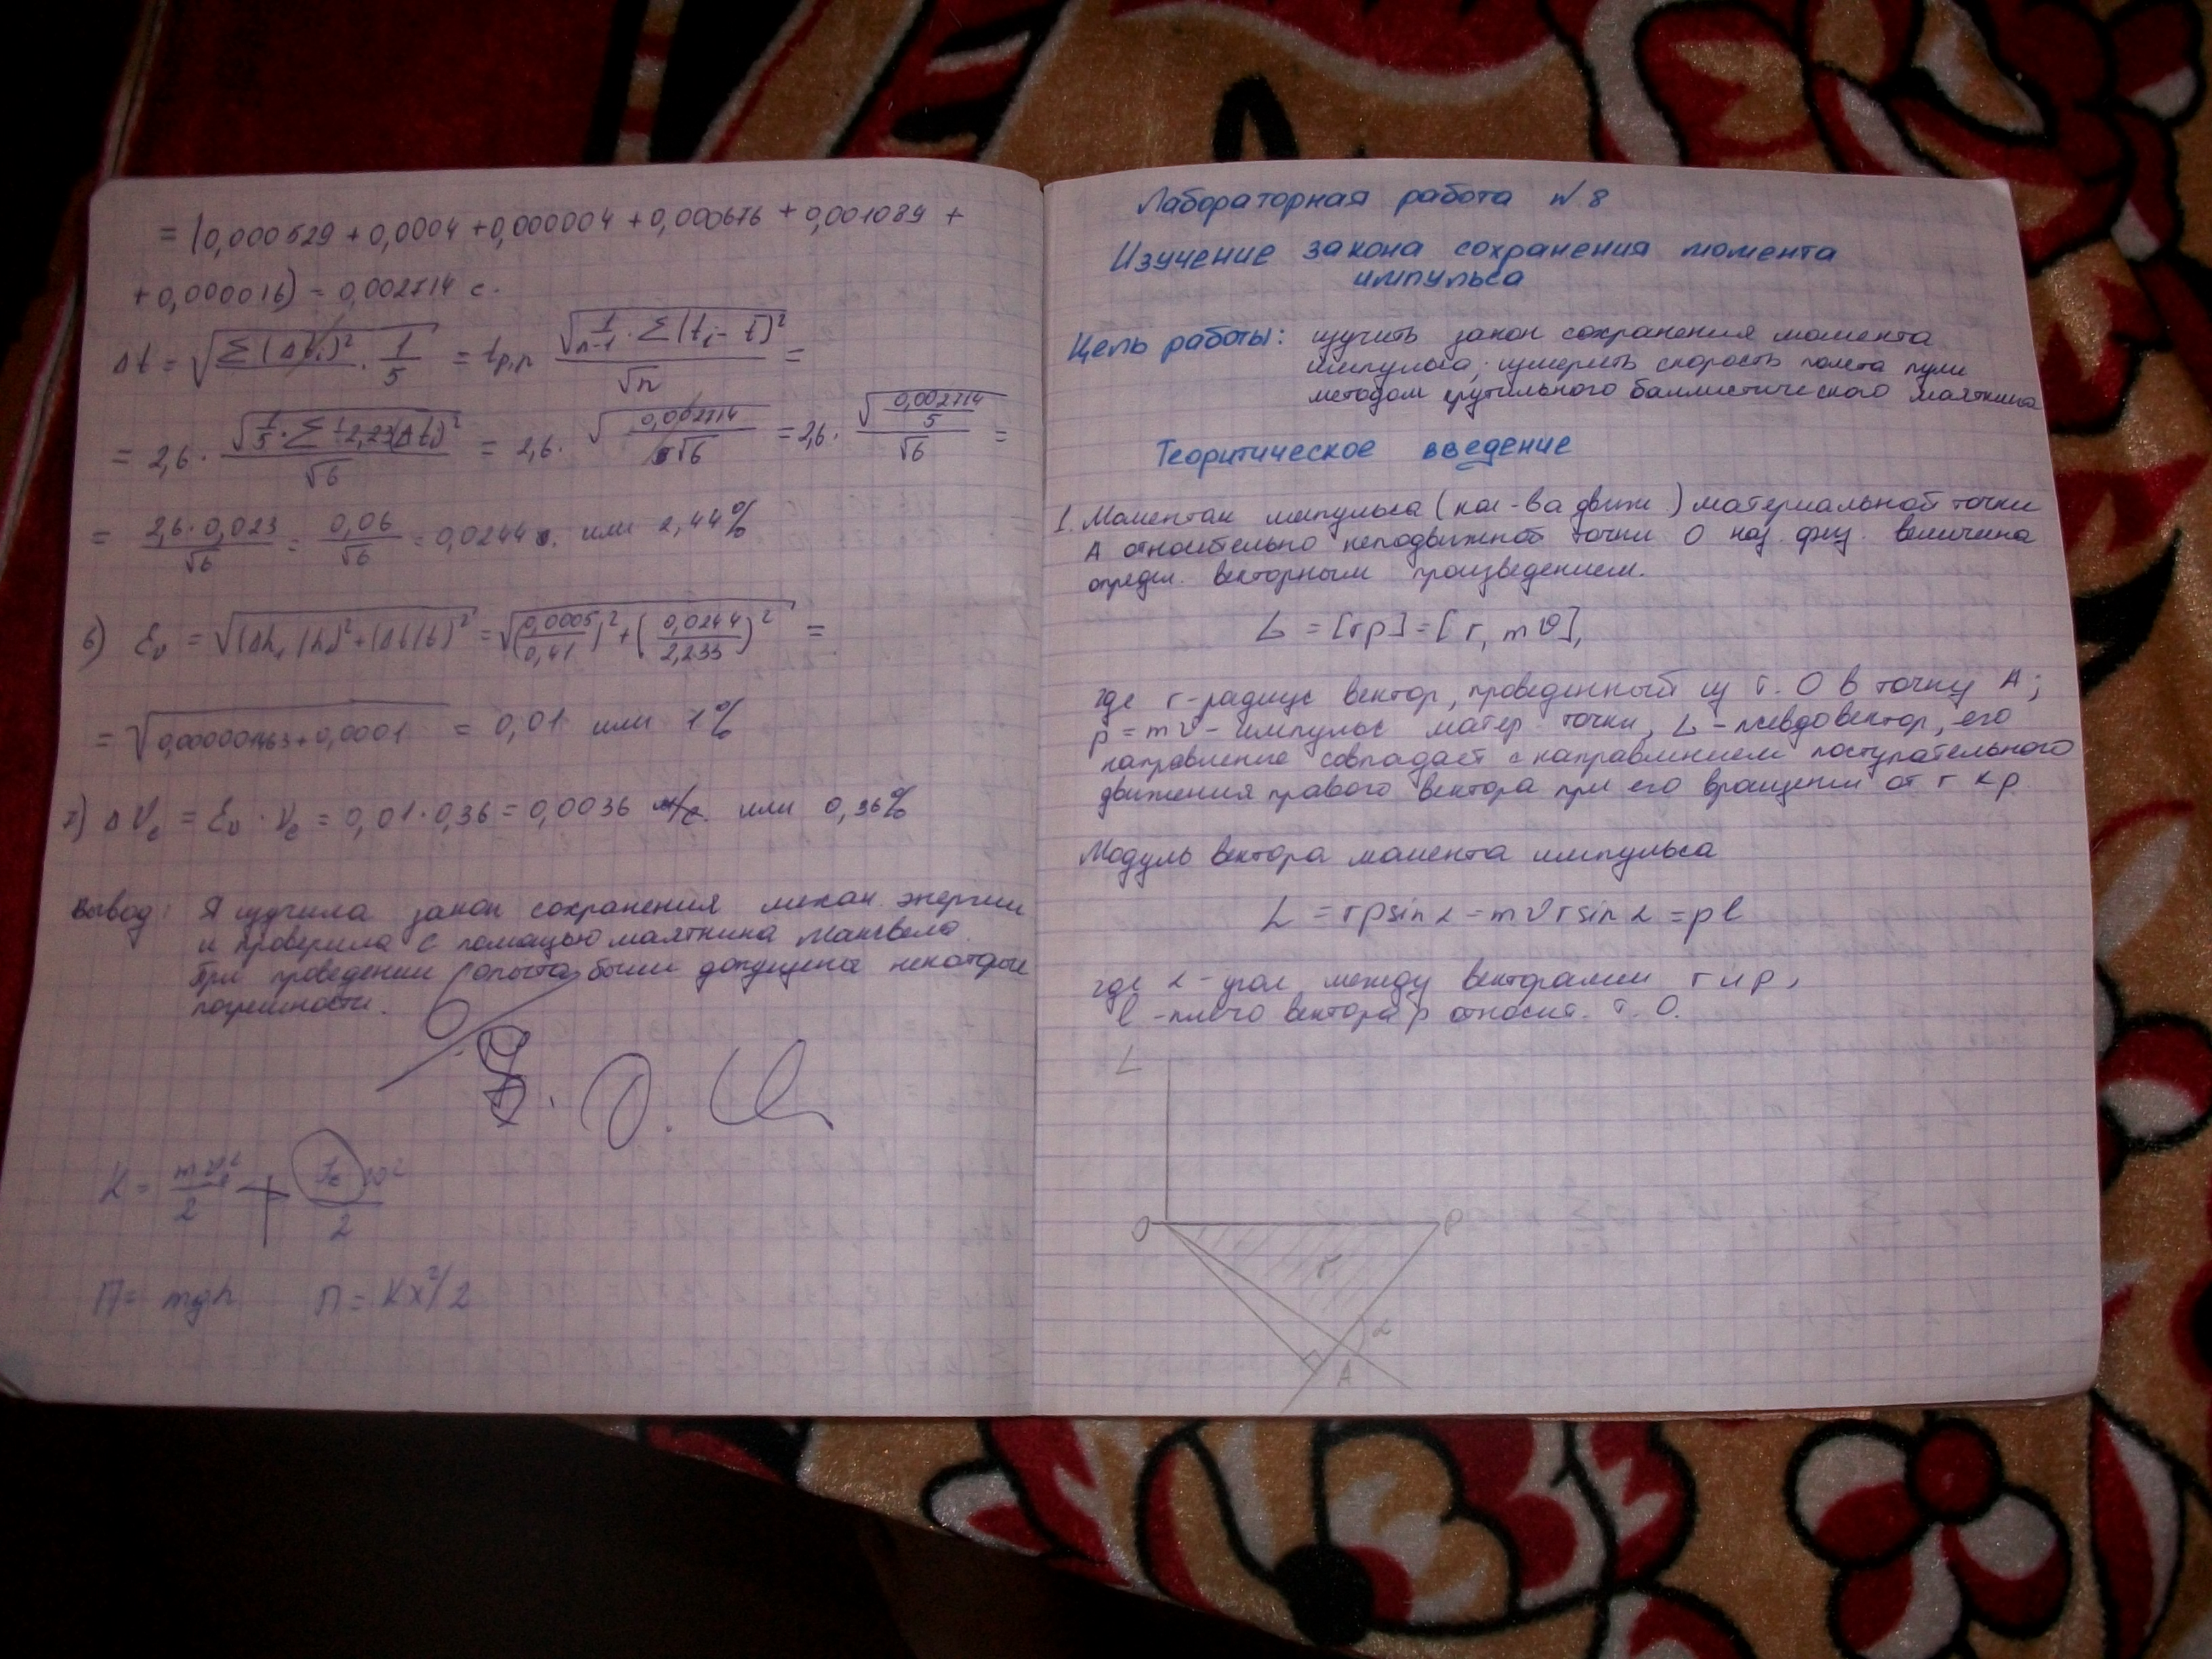 = (0,000529 + 0,0004 + 0,000004 + 0,000676 + 0,001089 +
+ 0,000016) = 0,002714 с.
Δt = √(Σ(Δti)² · 1/5) = tp,n √(1/n-1 · Σ(ti - t)²)/√n =
= 2,6 · = 2,6 · √(0,002714/√6) = 2,6 · √(0,002714/5)/√6 =
= 2,6 · 0,023/√6 = 0,06/√6 = 0,0244 с. или 2,44%
6) Ευ = √((Δh1/h1)² + (Δt/t)²) = √((0,0005/0,41)² + (0,0244/2,233)²) =
= √(0,000001463 + 0,0001) = 0,01 или 1%
7) Δvc = Ευ · vc = 0,01 · 0,36 = 0,0036 м/с. или 0,36%
Вывод: Я изучила закон сохранения механ. энергии
и проверила с помощью маятника Максвела.
При проведении опыта были допущена некоторые
погрешности.
K = mυc²/2 + Jc ω²/2
П = mgh П = kx²/2
Лабораторная работа №8
Изучение закона сохранения момента
импульса
Цель работы: изучить закон сохранения момента
импульса; измерить скорость полета пули
методом крутильного баллистического маятника
Теоритическое введение
1. Моментом импульса (кол-ва движ) материальной точки
А относительно неподвижной точки О наз. физ. величина
опредил. векторным произведением.
L = [rp] = [r, mυ],
где r-радиус вектор, проведенный из т. О в точку А;
p = mυ - импульс матер точки, L - псевдовектор, его
направление совпадает с направлением поступательного
движения правого вектора при его вращении от r к p.
Модуль вектора момента импульса
L = rpsin α = mυrsin α = pl
где α - угол между векторами r и p,
l - плечо вектора p относит. т. О.
L
O P
r
α
A